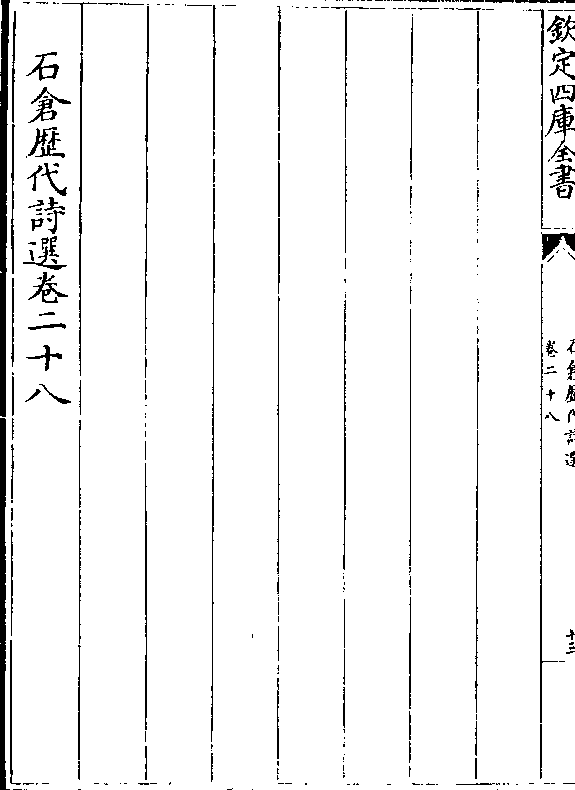 欽定四庫全書
石倉歴代詩選
卷二十八
十三
石倉歴代詩選卷二十八